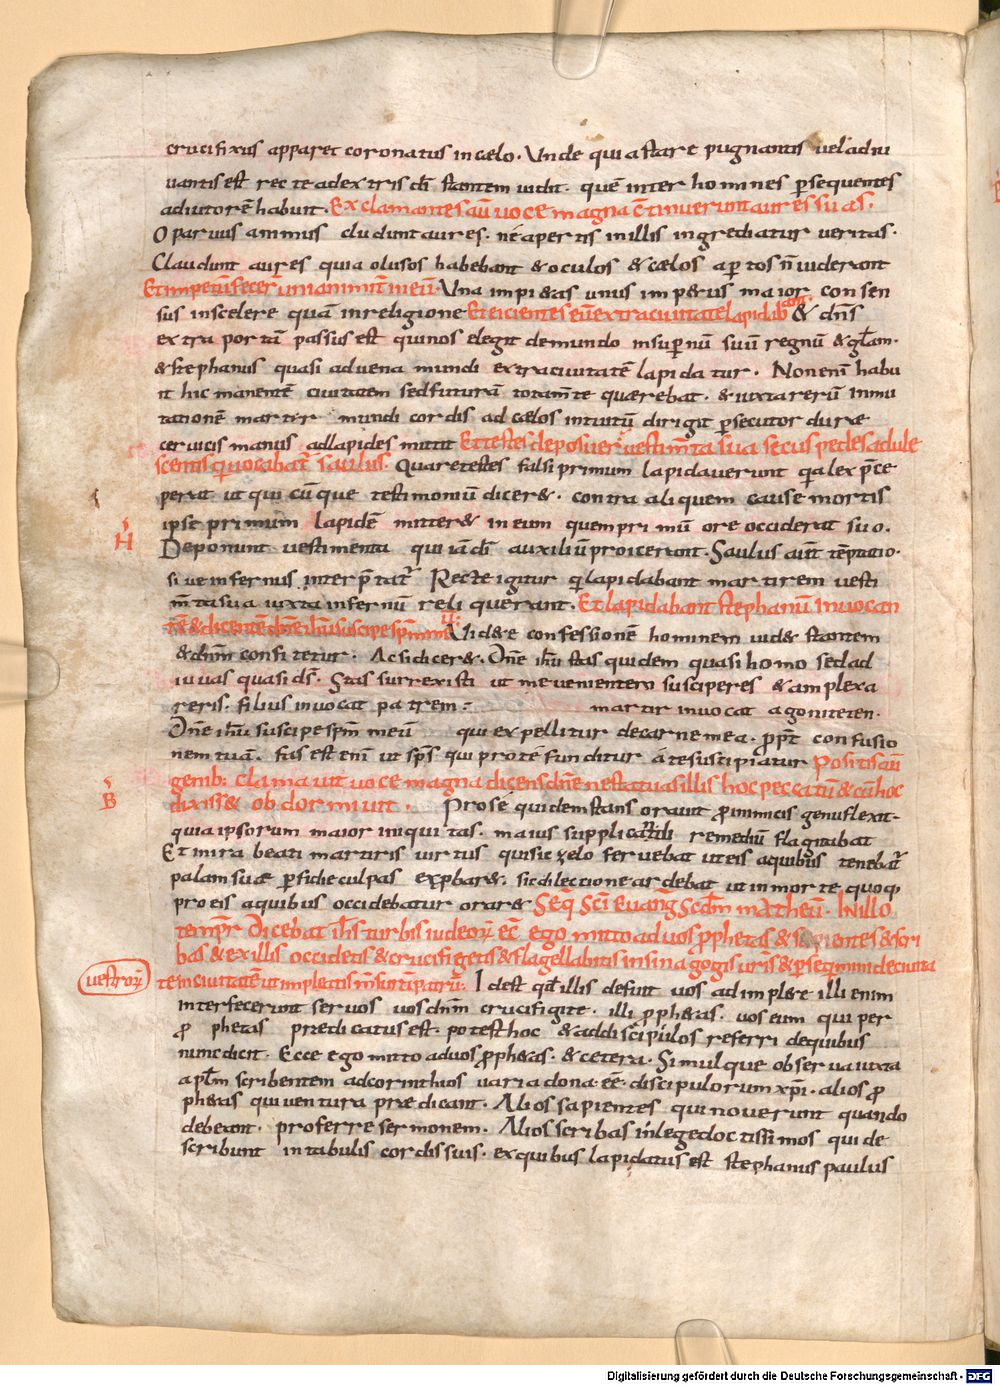 crucifixus apparet coronatus incaelo. Unde qui astare pugnantis uel adiu
uantis est recte adextris dī stantem uidit. quē inter homines psequentes
adiutorē habuit. Exclamantes aū uoce magna ctinuerunt aures suas.
O paruus animus cludunt aures. ne apertis in illis ingrediatur ueritas.
Claudunt aures quia olusos habebant & oculos & caelos aptos n̄ uiderant
Et impetū fecer unanimit ineū. Una impi&as unus imp&us maior consen
sus inscelere quā inreligione Et eicientes eū extra ciuitatē lapidab & dn̄s
extra portā passus est qui nos elegit demundo insupnū suū regnū & glam.
& stephanus quasi aduena mundi extra ciuitatē lapidatur. Non enī habu
it hic manentē ciuitatem sed futurā tota m̄te quaerebat. & iuxta rerū inmu
tationē martir mundi cordis ad caelos intuitū dirigit psecutor durae
ceruicis manus ad lapides mittit Et testes deposuer uestim̄ta sua secus pedes adule
scentis q uocabat saulus. Quare testes falsi primum lapidauerunt q a lex p̄ce
perat ut qui cūque testimoniū dicer&. contra aliquem cause mortis
ipse primum lapidē mitter& in eum quem primū ore occiderat suo.
H
Deponunt uestimenta qui iā dī auxiliū proicerant. Saulus aut tēptatio.
siue infernus interptat Recte igitur q lapidabant martirem uesti
m̄ta sua iuxta infernū reliquerant. Et lapidabant stephanū inuocan
tē & dicentē dn̄e ihū suscipe spm̄ meū Uid&e confessionē hominem uid& stantem
& dn̄m confitetur. Ac si dicer&. Dn̄e ihū stas quidem quasi homo sed ad
iuuas quasi ds̄. Stas surrexisti ut me uenientem susciperes & amplexa
reris. filius inuocat patrem: martir inuocat agoniteten.
Dn̄e ihū suscipe spm̄ meū qui expellitur de carne mea. ppt confusio
nem tuā. fas est enī ut sps̄ qui pro te funditur a te suscipiatur Positis aū
B
genib; clamauit uoce magna dicens dn̄e ne statuas illis hoc peccatū & cū hoc
dixiss& obdormiuit. Pro se quidem stans orauit p inimicis genu flexit.
quia ipsorum maior iniquitas. maius supplicandi remediū flagitabat
Et mira beati martiris uirtus qui sic zelo feruebat ut eis aquibus tenebat
palam suae pfidie culpas exphar&. sic dilectione ardebat ut in morte quoq
pro eis aquibus occidebatur orar& Seq̄ Sc̄i Euang Scdm̄ Matheū. In illo
tempr Dicebat ihs turbis iudeor ec ego mitto ad uos pphetas & sapientes & scri
bas & ex illis occidetis & crucifigetis & flagellabitis in sinagogis uris & pseqmini de ciuita
uestror
tem ciuitatē ut impleatis m̄surā patrū. Id est qd illis defuit uos adimpl&e illi enim
interfecerunt seruos uos dn̄m crucifigite. illi pph&as. uos eum qui per
pphetas praedicatus est. potest hoc & addiscipulos referri de quibus
nunc dicit. Ecce ego mitto ad uos pph&as. & cetera. Simulque obserua iuxta
aplm̄ scribentem ad corinthios uaria dona eē discipulorum xp̄i. alios p
ph&as qui uentura praedicant. Alios sapientes qui nouerunt quando
debeant proferre sermonem. Alios scribas in lege doctissimos qui de
scribunt in tabulis cordis suis. ex quibus lapidatus est stephanus paulus
Digitalisierung gefördert durch die Deutsche Forschungsgemeinschaft - DFG